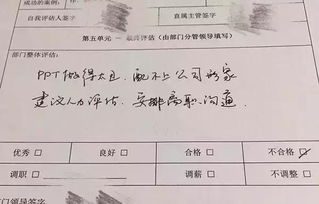 成功的案例，
自我评估人签字 直属主管签字
第五单元 — 最终评估（由部门分管领导填写）
部门整体评估：
PPT做得太丑，配不上公司的家
建议人力评估，安排离职沟通。
优秀 □ 良好 □ 合格 □ 不合格 ☑
调职 □ 调薪 □ 不调整 □
部门领导签字